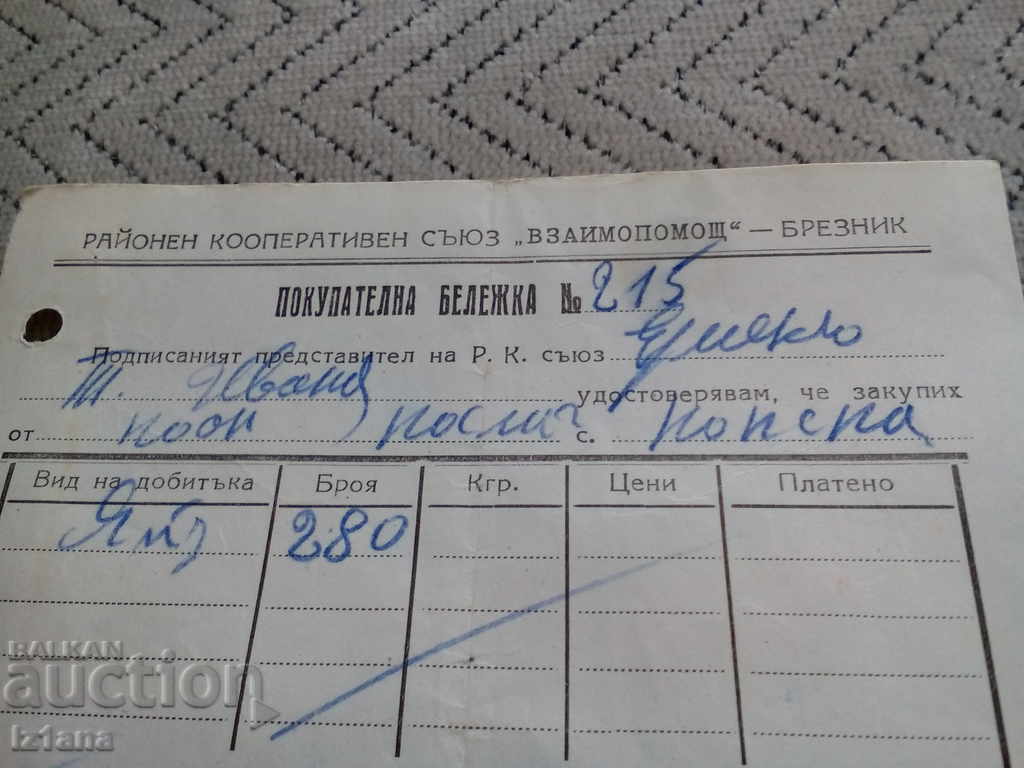 РАЙОНЕН КООПЕРАТИВЕН СЪЮЗ „ВЗАИМОПОМОЩ“ — БРЕЗНИК
ПОКУПАТЕЛНА БЕЛЕЖКА № 215
Подписаният представител на Р. К. съюз
Т. Иванq удостоверявам, че закупих
от кооп с. Конска
Вид на добитъка Броя Кгр. Цени Платено
Яйц 280
BALKAN
auction
iz1ana